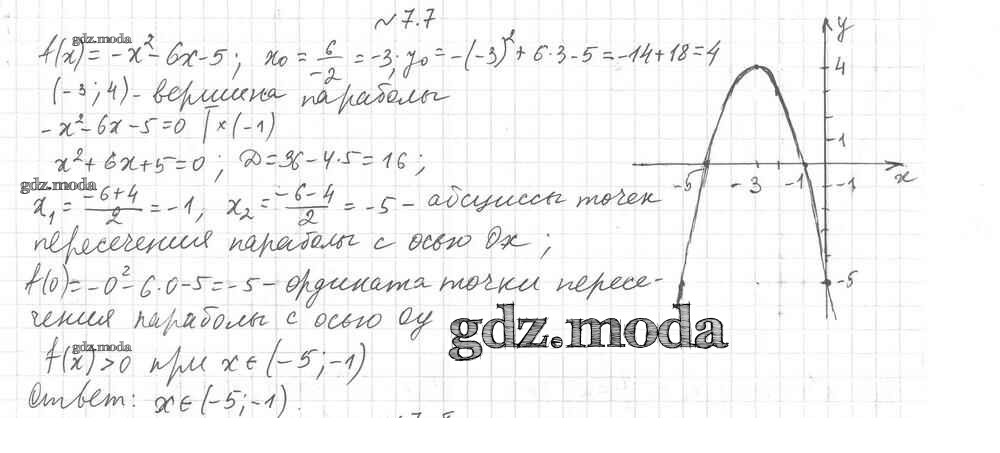 № 7.7
f(x) = -x² - 6x - 5; x₀ = 6/-2 = -3; y₀ = -(-3)² + 6·3 - 5 = -14 + 18 = 4
(-3; 4) - вершина параболы
-x² - 6x - 5 = 0 |×(-1)
x² + 6x + 5 = 0; D = 36 - 4·5 = 16;
x₁ = (-6+4)/2 = -1, x₂ = (-6-4)/2 = -5 - абсциссы точек
пересечения параболы с осью Ox;
f(0) = -0² - 6·0 - 5 = -5 - ордината точки пересе-
чения параболы с осью Oy
f(x) > 0 при x ∈ (-5; -1)
Ответ: x ∈ (-5; -1).
gdz.moda
gdz.moda
gdz.moda
gdz.moda
y
4
1
-5 -3 -1 -1 x
-5